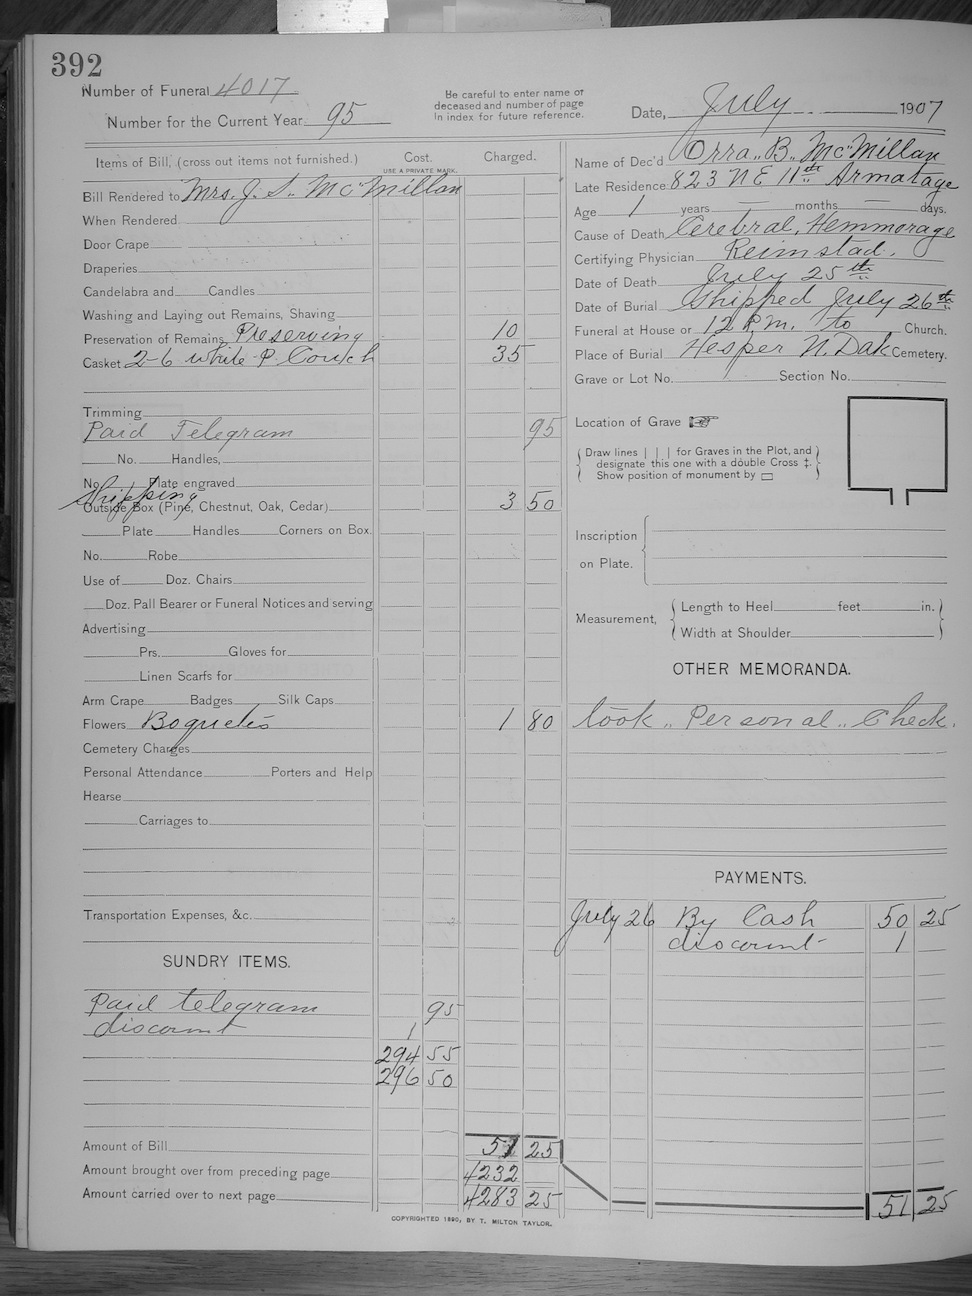 392
Number of Funeral 4017
Number for the Current Year 95
Be careful to enter name of
deceased and number of page
in index for future reference.
Date, July 1907
Items of Bill, (cross out items not furnished.) Cost. Charged.
USE A PRIVATE MARK.
Bill Rendered to Mrs. J. S. McMillan
When Rendered
Door Crape
Draperies
Candelabra and Candles
Washing and Laying out Remains, Shaving
Preservation of Remains Preserving 10
Casket 2-6 white P. Couch 35
Trimming
Paid Telegram 95
No. Handles,
No. Plate engraved
Shipping
Outside Box (Pine, Chestnut, Oak, Cedar) 3 50
Plate Handles Corners on Box.
No. Robe
Use of Doz. Chairs
Doz. Pall Bearer or Funeral Notices and serving
Advertising
Prs. Gloves for
Linen Scarfs for
Arm Crape Badges Silk Caps
Flowers Boquets 1 80
Cemetery Charges
Personal Attendance Porters and Help
Hearse
Carriages to
Transportation Expenses, &c.
SUNDRY ITEMS.
Paid telegram 95
discount 1
294 55
296 50
Amount of Bill 51 25
Amount brought over from preceding page 4232
Amount carried over to next page 4283 25
COPYRIGHTED 1890, BY T. MILTON TAYLOR.
Name of Dec'd Orra B. McMillan
Late Residence 823 N E 11th Armatage
Age 1 years — months — days.
Cause of Death Cerebral, Hemmorage
Certifying Physician Reimstad.
Date of Death July 25th
Date of Burial Shipped July 26th
Funeral at House or 12 P.m. to Church.
Place of Burial Hesper N. Dak Cemetery.
Grave or Lot No. Section No.
Location of Grave
Draw lines | | | for Graves in the Plot, and
designate this one with a double Cross ‡.
Show position of monument by ▭
Inscription
on Plate.
Measurement, Length to Heel feet in.
Width at Shoulder
OTHER MEMORANDA.
took "Personal" Check.
PAYMENTS.
July 26 By Cash 50 25
discount 1
51 25